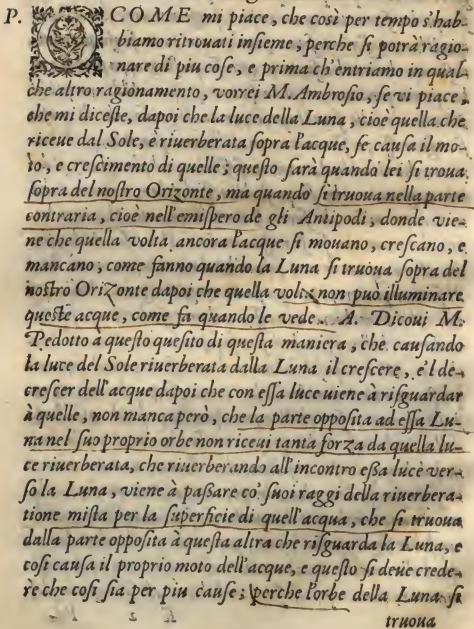 P. O COME mi piace, che così per tempo s'hab-
biamo ritrouati insieme, perche si potrà ragio-
nare di piu cose, e prima ch'entriamo in qual-
che altro ragionamento, vorrei M. Ambrosio, se vi piace;
che mi diceste, dapoi che la luce della Luna, cioè quella che
riceue dal Sole, è riuerberata sopra l'acque, se causa il mo-
to, e crescimento di quelle; questo sarà quando lei si troua
sopra del nostro Orizonte, ma quando si truoua nella parte
contraria, cioè nell'emispero de gli Antipodi, donde vie-
ne che quella volta ancora l'acque si mouano, crescano, e
mancano, come fanno quando la Luna si truoua sopra del
nostro Orizonte dapoi che quella volta non può illuminare
queste acque, come fa quando le vede. A. Dicoui M.
Pedotto à questo quesito di questa maniera, che causando
la luce del Sole riuerberata dalla Luna il crescere, e'l de-
crescer dell'acque dapoi che con essa luce uiene à risguardar
à quelle, non manca però, che la parte opposita ad essa Lu-
na nel suo proprio orbe non riceui tanta forza da quella lu-
ce riuerberata, che riuerberando all'incontro eßa luce ver-
so la Luna, viene à paßare co' suoi raggi della riuerbera-
tione mista per la superficie di quell'acqua, che si truoua
dalla parte opposita à questa altra che risguarda la Luna, e
cosi causa il proprio moto dell'acque, e questo si deue crede-
re che cosi sia per piu cause; perche l'orbe della Luna si
truoua